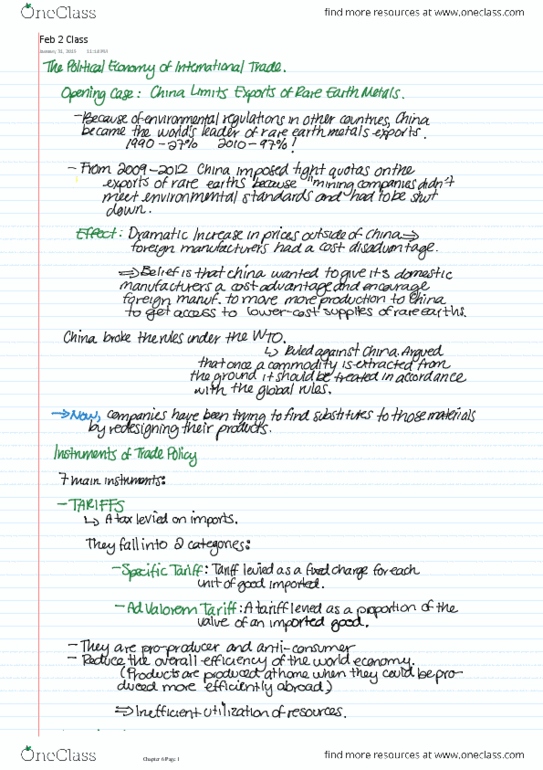 OneClass
find more resources at www.oneclass.com
Feb 2 Class
The Political Economy of International Trade.
Opening Case: China Limits Exports of Rare Earth Metals.
-Because of environmental regulations in other countries, China
became the world's leader of rare earth metals exports.
1990-27% 2010-97%!
- From 2009-2012 China imposed tight quotas on the
exports of rare earths because "mining companies didn't
meet environmental standards and had to be shut
down.
Effect: Dramatic Increase in prices outside of China⇒
foreign manufacturers had a cost disadvantage.
⇒Belief is that china wanted to give its domestic
manufacturers a cost advantage and encourage
foreign manuf. to more more production to China
to get access to lower-cost supplies of rare earths.
China broke the rules under the WTO.
↳ Ruled against China. Argued
that once a commodity is extracted from
the ground it should be treated in accordance
with the global rules.
→Now, companies have been trying to find substitutes to those materials
by redesigning their products.
Instruments of Trade Policy
7 main instruments:
- TARIFFS
↳ A tax levied on imports.
They fall into 2 categories:
-Specific Tariff: Tariff levied as a fixed charge for each
unit of good imported.
-Ad Valorem Tariff: A tariff levied as a proportion of the
value of an imported good.
- They are pro-producer and anti-consumer
- Reduce the overall efficiency of the world economy.
(Products are produced at home when they could be pro-
duced more efficiently abroad)
⇒ Inefficient utilization of resources.
OneClass
Chapter 6 Page 1
find more resources at www.oneclass.com